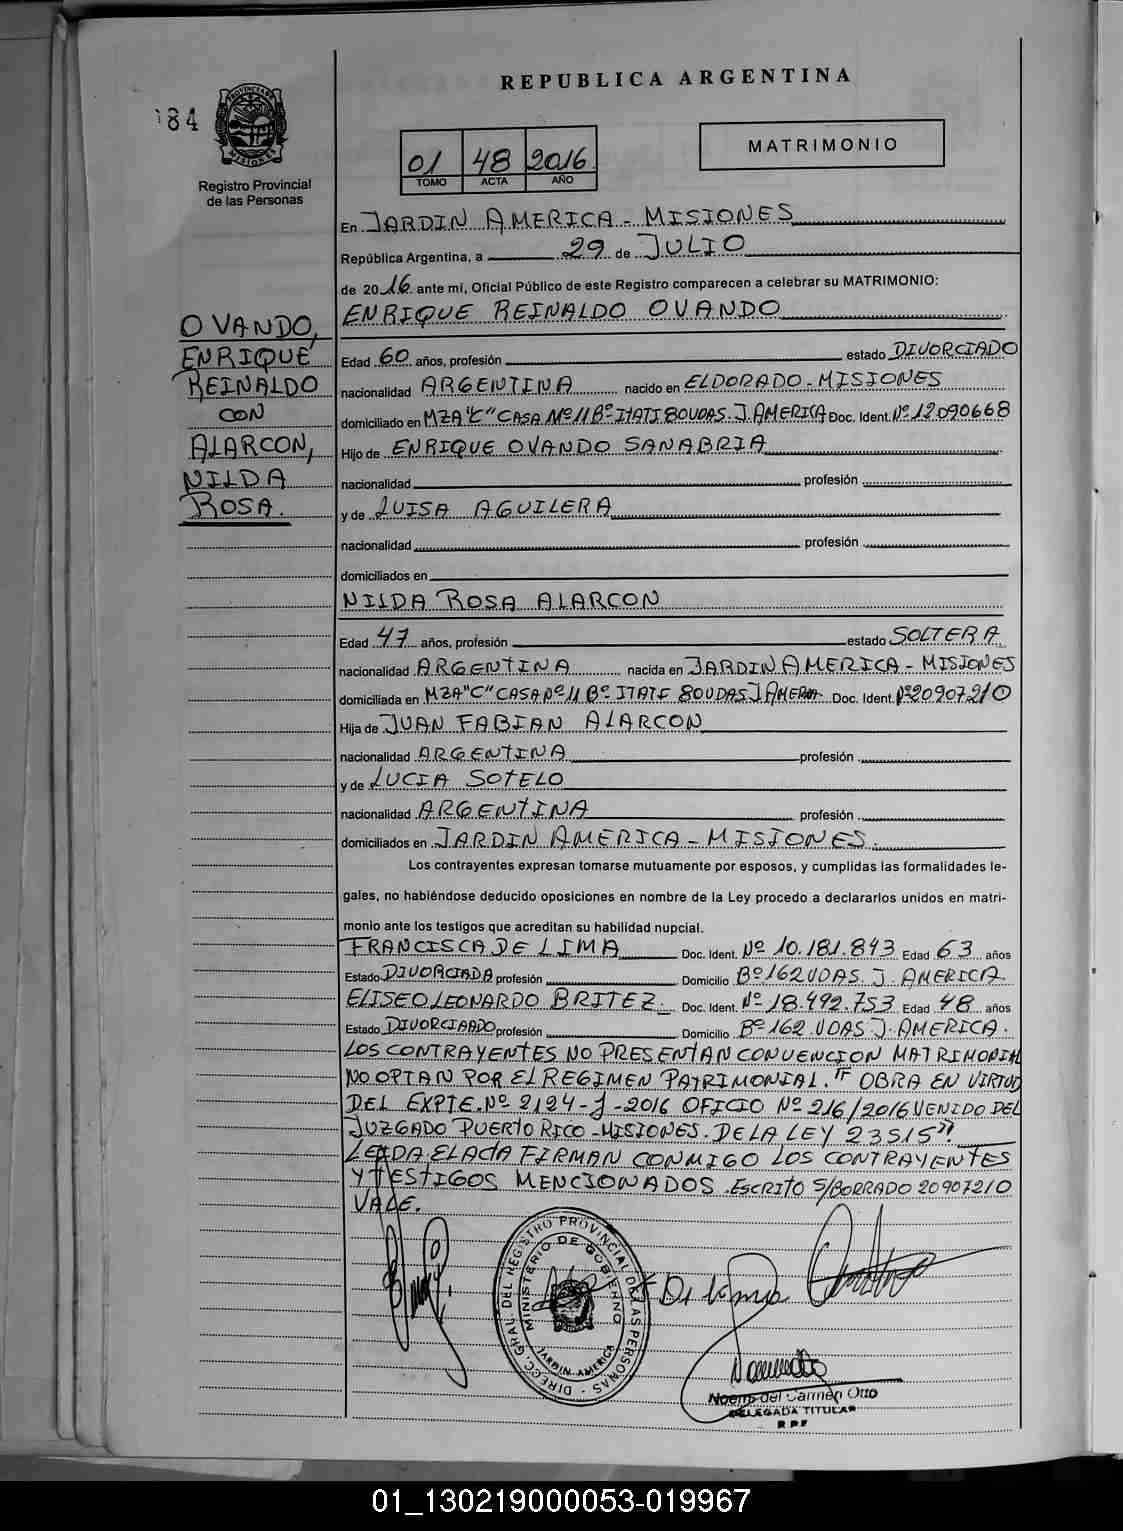 REPUBLICA ARGENTINA
84
PROVINCIA DE MISIONES
Registro Provincial
de las Personas
01 48 2016
TOMO ACTA AÑO
MATRIMONIO
En JARDIN AMERICA - MISIONES
República Argentina, a 29 de JULIO
de 2016 ante mí, Oficial Público de este Registro comparecen a celebrar su MATRIMONIO:
ENRIQUE REINALDO OVANDO
OVANDO,
ENRIQUE
REINALDO
CON
ALARCON,
NILDA
ROSA.
Edad 60 años, profesión estado DIVORCIADO
nacionalidad ARGENTINA nacido en ELDORADO - MISIONES
domiciliado en MZA "C" CASA Nº 11 Bº ITATI 80UDAS. J. AMERICA Doc. Ident. Nº 12.090668
Hijo de ENRIQUE OVANDO SANABRIA
nacionalidad profesión
y de LUISA AGUILERA
nacionalidad profesión
domiciliados en
NILDA ROSA ALARCON
Edad 47 años, profesión estado SOLTERA
nacionalidad ARGENTINA nacida en JARDIN AMERICA - MISIONES
domiciliada en MZA "C" CASA Nº 11 Bº ITATI 80UDAS J AMERICA Doc. Ident. Nº 20907210
Hija de JUAN FABIAN ALARCON
nacionalidad ARGENTINA profesión
y de LUCIA SOTELO
nacionalidad ARGENTINA profesión
domiciliados en JARDIN AMERICA - MISIONES.
Los contrayentes expresan tomarse mutuamente por esposos, y cumplidas las formalidades le-
gales, no habiéndose deducido oposiciones en nombre de la Ley procedo a declararlos unidos en matri-
monio ante los testigos que acreditan su habilidad nupcial.
FRANCISCA DE LIMA Doc. Ident. Nº 10.181.843 Edad 63 años
Estado DIVORCIADA profesión Domicilio Bº 162 UDAS. J. AMERICA
ELISEO LEONARDO BRITEZ. Doc. Ident. Nº 18.492.753 Edad 48 años
Estado DIVORCIADO profesión Domicilio Bº 162 UDAS J. AMERICA.
LOS CONTRAYENTES NO PRESENTAN CONVENCION MATRIMONIAL
NO OPTAN POR EL REGIMEN PATRIMONIAL. " OBRA EN VIRTUD
DEL EXPTE. Nº 2124-J-2016 OFICIO Nº 216/2016 VENIDO DEL
JUZGADO PUERTO RICO - MISIONES. DE LA LEY 23515".
LEIDA EL ACTA FIRMAN CONMIGO LOS CONTRAYENTES
Y TESTIGOS MENCIONADOS. ESCRITO S/BORRADO 20907210
VALE.
DIRECC. GRAL. DEL REGISTRO PROVINCIAL DE LAS PERSONAS
MINISTERIO DE GOBIERNO
JARDIN AMERICA
Noemi del Carmen Otto
DELEGADA TITULAR
R P P
01_130219000053-019967